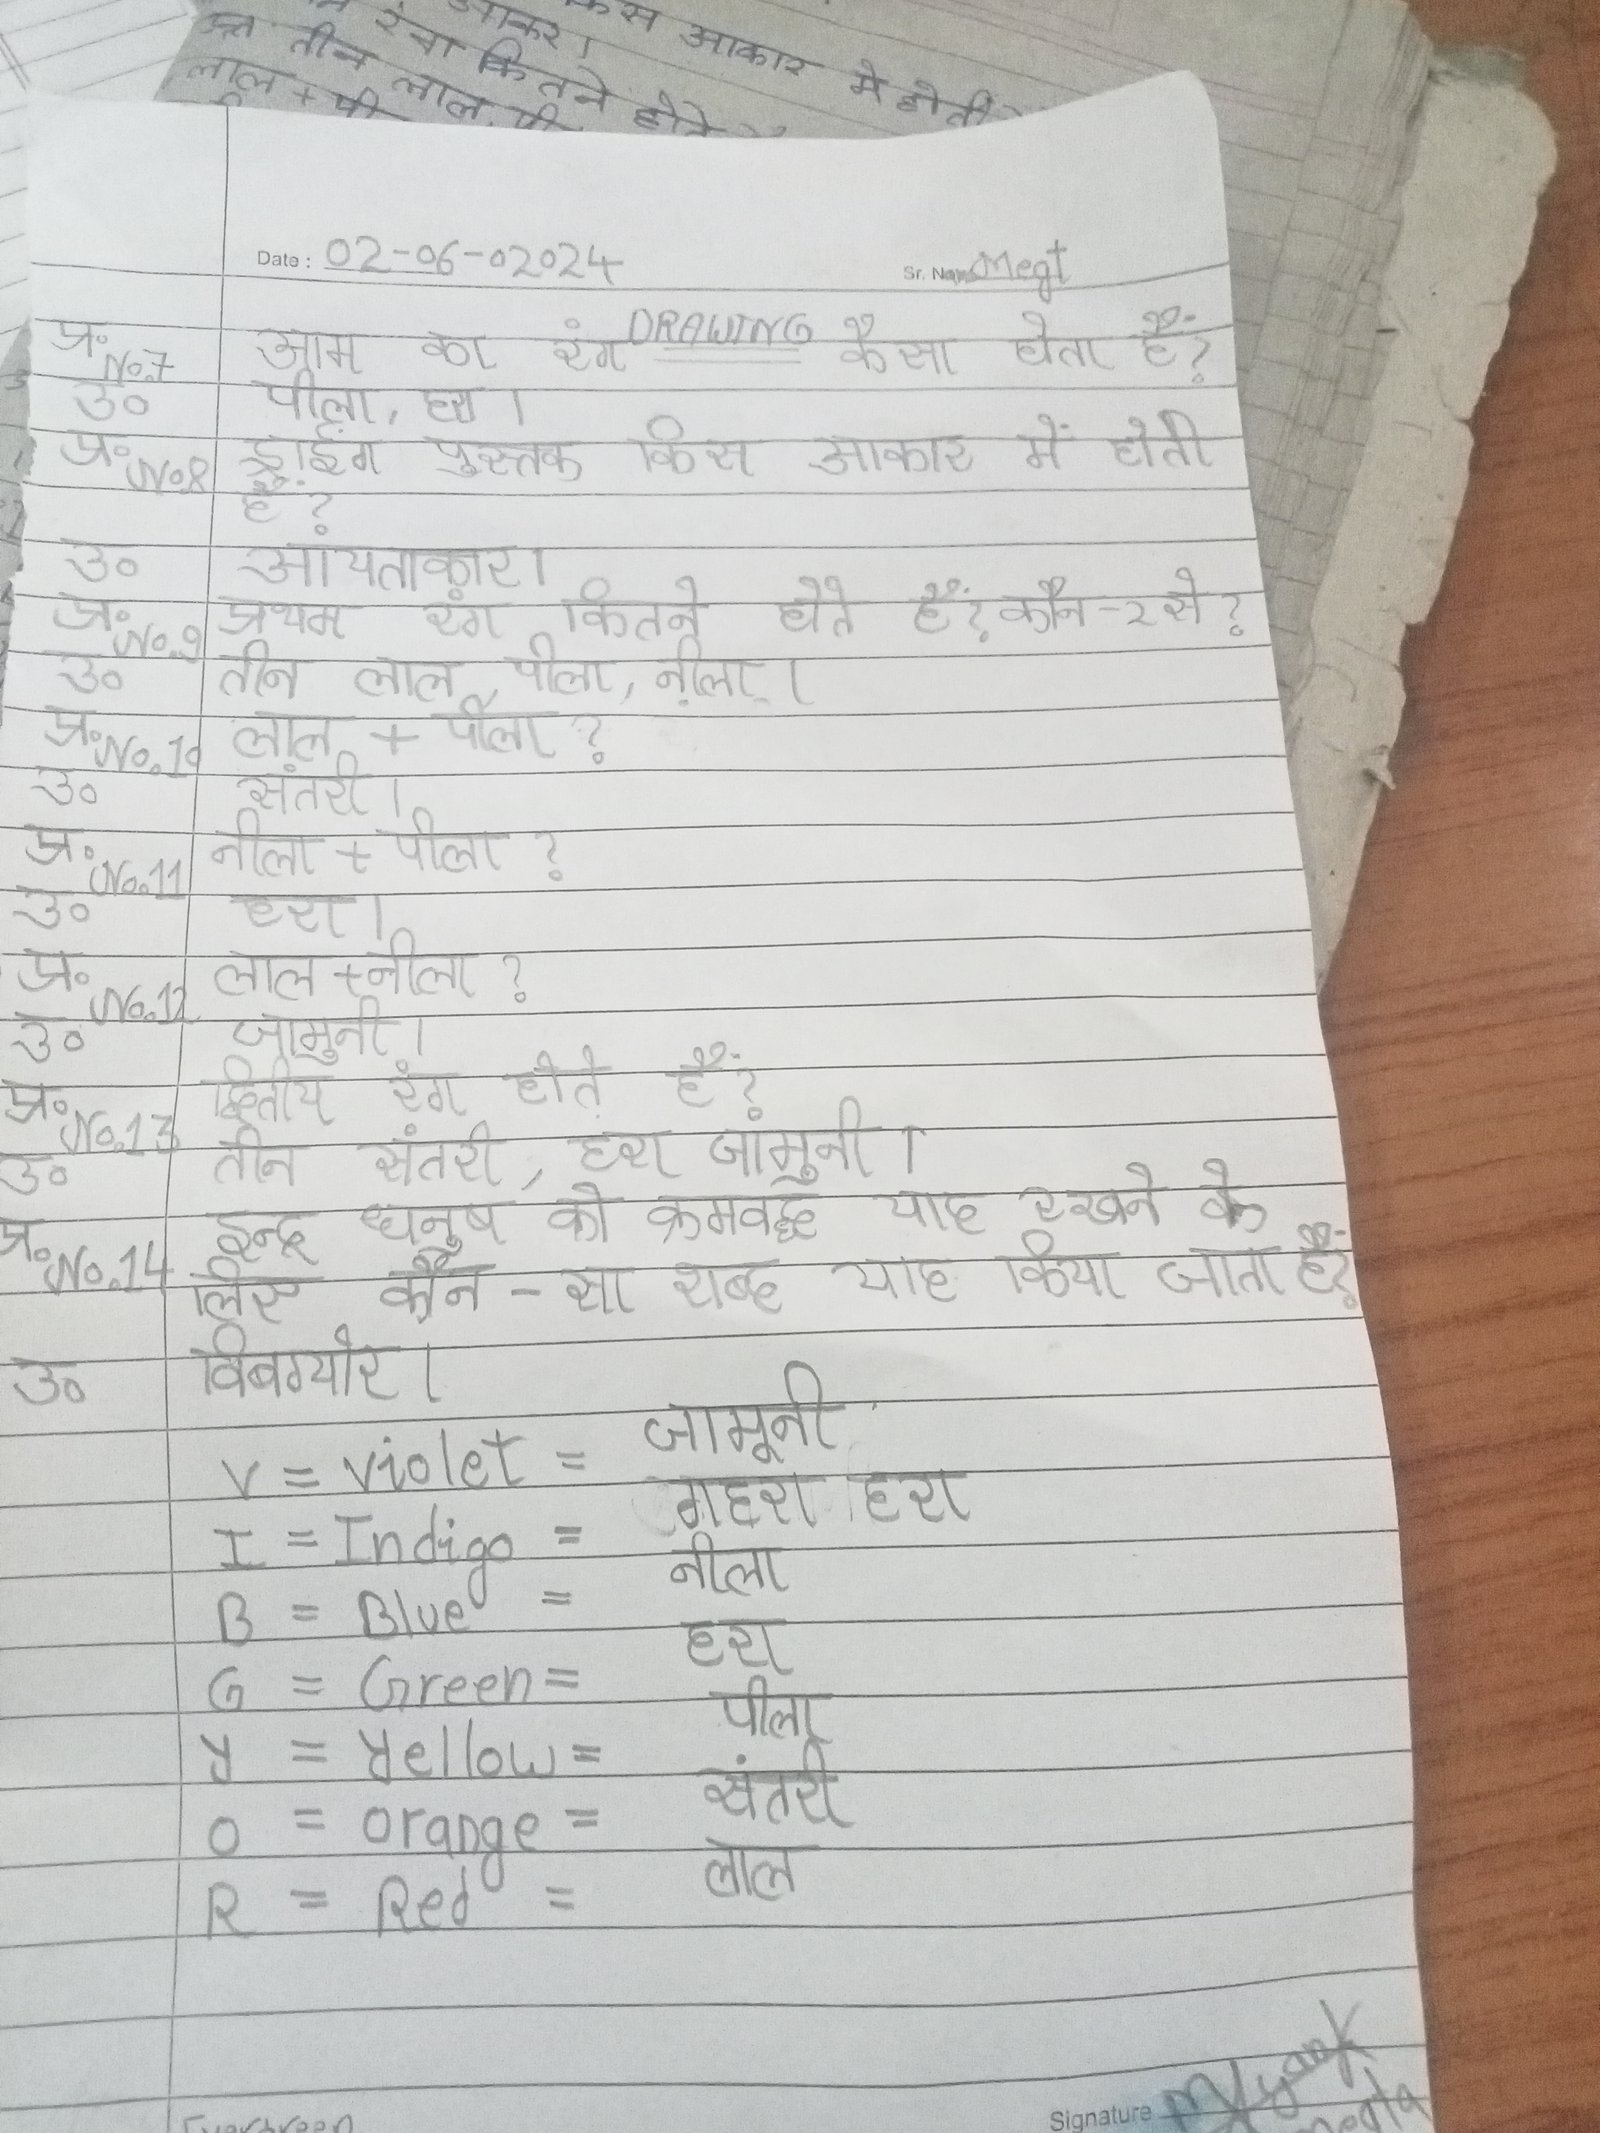 किस आकार में होती
आकार।
रंग कितने होते
तीन लाल
लाल + पी
Date: 02-06-02024
Sr. Name Megt
DRAWING
प्र॰ No.7 आम का रंग कैसा होता है?
उ॰ पीला, हरा।
प्र॰ No.8 ड्राइंग पुस्तक किस आकार में होती
हैं?
उ॰ आंयताकार।
प्र॰ No.9 प्रथम रंग कितने होते हैं? कौन-२ से?
उ॰ तीन लाल, पीला, नीला।
प्र॰ No.10 लाल + पीला?
उ॰ संतरी।
प्र॰ No.11 नीला + पीला?
उ॰ हरा।
प्र॰ No.12 लाल + नीला?
उ॰ जामुनी।
प्र॰ No.13 द्वितीय रंग होते हैं?
उ॰ तीन संतरी, हरा जांमुनी।
प्र॰ No.14 इन्द्र धनुष को क्रमवद्ध याह रखने के
लिए कौन-सा शब्ह याह किया जाता हैं?
उ॰ विबग्योर।
V = Violet = जामूनी
I = Indigo = गहरा हरा
B = Blue = नीला
G = Green = हरा
Y = Yellow = पीला
O = orange = संतरी
R = Red = लाल
Evergreen
Signature Myank